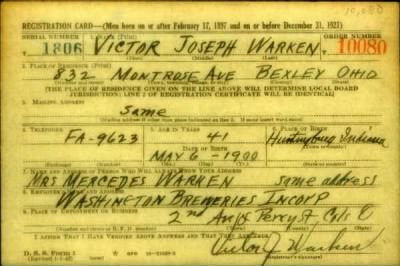 REGISTRATION CARD—(Men born on or after February 17, 1897 and on or before December 31, 1921)
SERIAL NUMBER 1. NAME (Print) ORDER NUMBER
1806 VICTOR JOSEPH WARKEN 10080
(First) (Middle) (Last)
2. PLACE OF RESIDENCE (Print)
832 MONTROSE AVE BEXLEY OHIO
(THE PLACE OF RESIDENCE GIVEN ON THE LINE ABOVE WILL DETERMINE LOCAL BOARD
JURISDICTION; LINE 2 OF REGISTRATION CERTIFICATE WILL BE IDENTICAL)
3. MAILING ADDRESS
Same
4. TELEPHONE 5. AGE IN YEARS 6. PLACE OF BIRTH
FA-9623 41 Huntingburg Indiana
DATE OF BIRTH
MAY 6 - 1900
7. NAME AND ADDRESS OF PERSON WHO WILL ALWAYS KNOW YOUR ADDRESS
MRS MERCEDES WARKEN same address
8. EMPLOYER'S NAME AND ADDRESS
WASHINGTON BREWERIES INCORP
9. PLACE OF EMPLOYMENT OR BUSINESS
2nd Ave Perry St Cols O
I AFFIRM THAT I HAVE VERIFIED ABOVE ANSWERS AND THAT THEY ARE TRUE.
D. S. S. Form 1
Victor J Warken